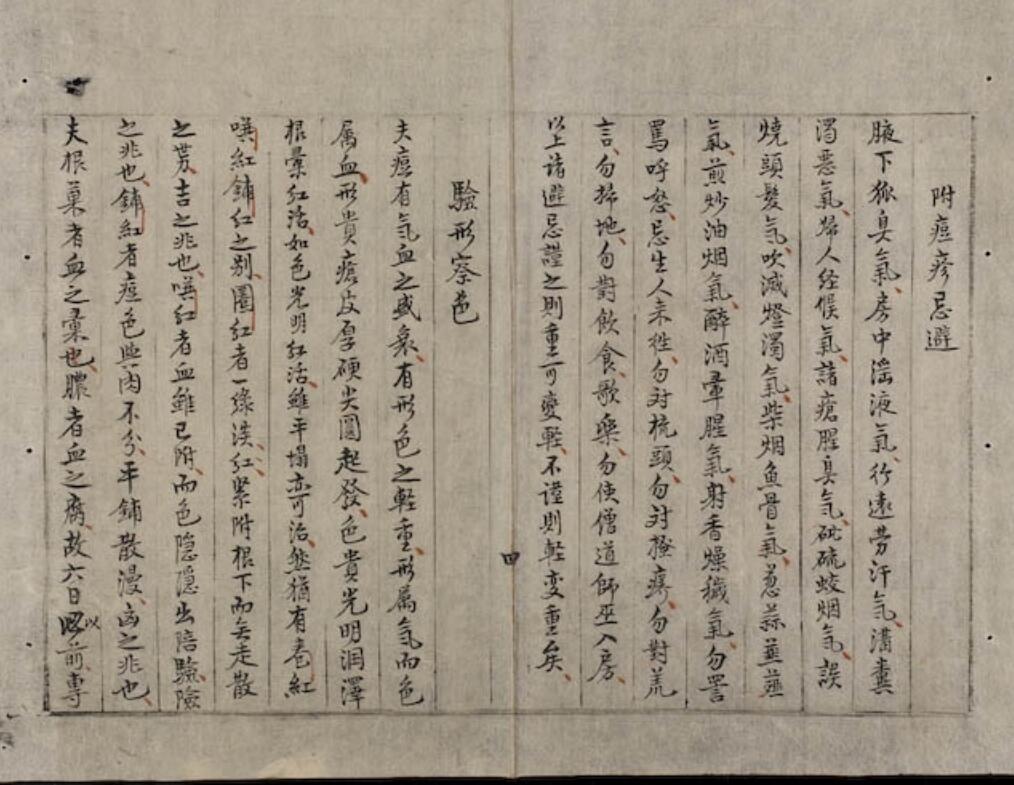 附痘疹忌避
腋下狐臭氣房中滛液氣行遠劳汗氣溝糞
濁惡氣婦人经候氣諸瘡腥臭氣硫硫蛟烟氣誤
燒頭髮氣吹滅燈濁氣柴烟魚骨氣葱蒜韮薤
氣煎炒油烟氣醉酒葷腥氣射香燥穢氣勿詈
罵呼怒忌生人来徃勿对梳頭勿对搔痒勿對荒
言勿掃地勿對飲食歌樂勿使僧道師巫入房
以上诸避忌謹之則重可變輕不謹則軽变重矣
四
驗形察色
夫痘有气血之盛衰有形色之軽重形属气而色
属血形貴瘡皮厚硬尖圓起發色貴光明润澤
根窠红活如色光明红活雖平塌亦可治然猶有圈红
噀紅鋪红之别圈红者一缐淡红紧附根下而无走散
之势吉之兆也噀红者血雖已附而色隐隠出陪驗險
之兆也鋪紅者痘色與肉不分平鋪散漫凶之兆也
夫根窠者血之窠也膿者血之腐故六日以前專